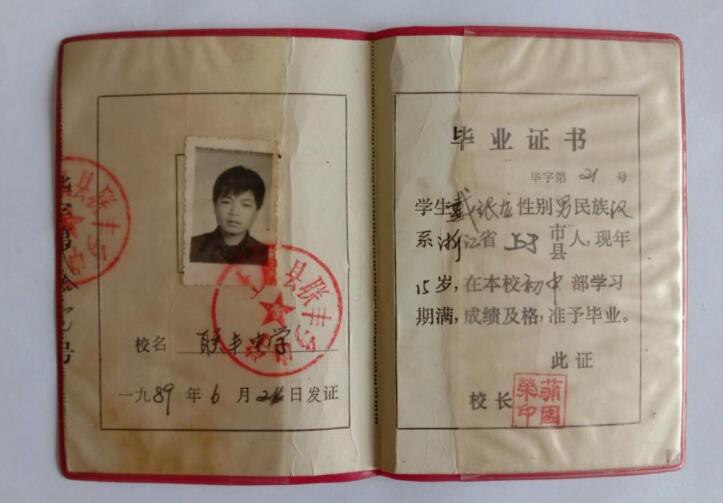 校名 联丰中学
一九89年6月2日发证
毕业证书
毕字第21号
学生戴银 性别男民族汉
系浙江省 市县人,现年
15岁,在本校初中部学习
期满,成绩及格,准予毕业。
此证
校长
县联丰中学